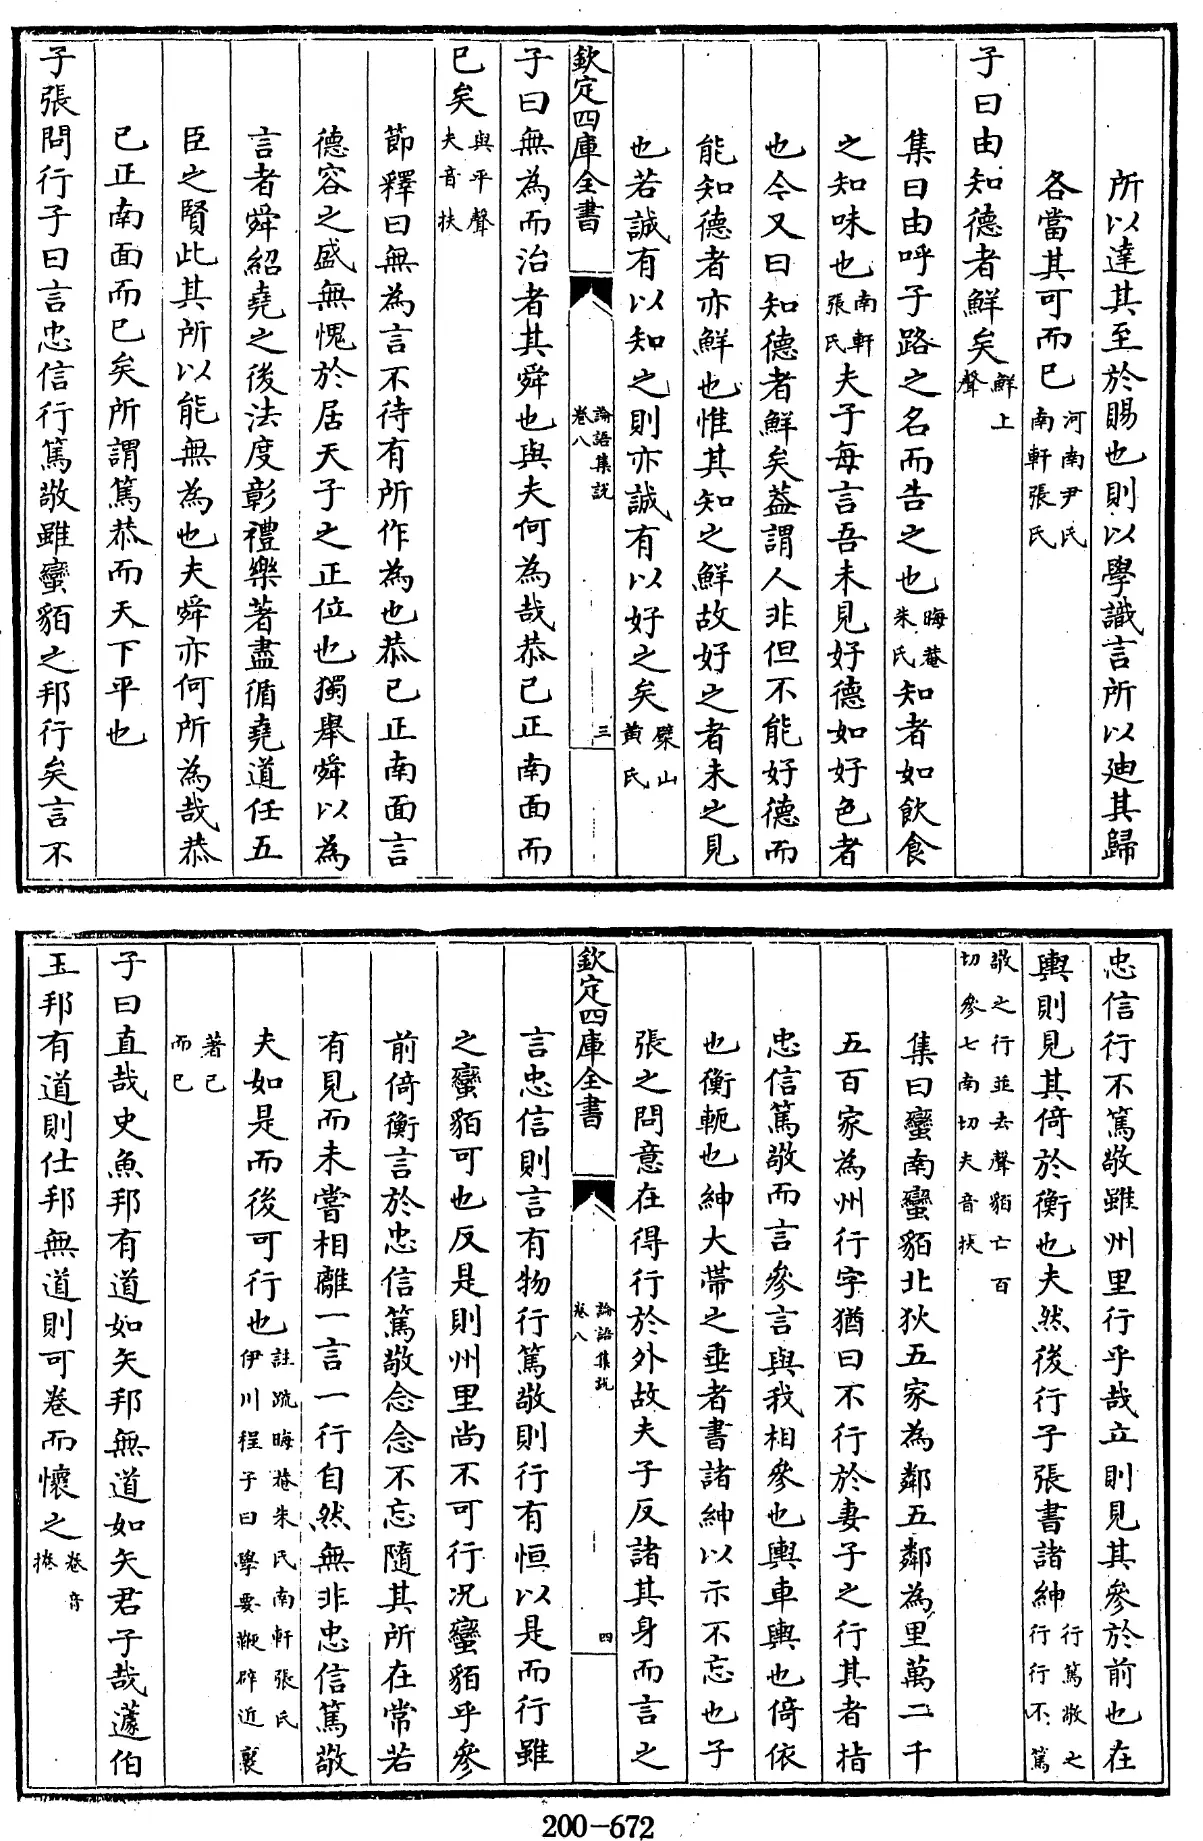 所以達其至於賜也則以學識言所以廸其歸
各當其可而已河南尹氏南軒張氏
子曰由知德者鮮矣鮮上聲
集曰由呼子路之名而告之也晦菴朱氏知者如飲食
之知味也南軒張氏夫子每言吾未見好德如好色者
也今又曰知德者鮮矣葢謂人非但不能好德而
能知德者亦鮮也惟其知之鮮故好之者未之見
也若誠有以知之則亦誠有以好之矣檗山黄氏
欽定四庫全書
論語集説
卷八
三
子曰無為而治者其舜也與夫何為哉恭已正南面而
已矣與平聲夫音扶
節釋曰無為言不待有所作為也恭已正南面言
德容之盛無愧於居天子之正位也獨舉舜以為
言者舜紹堯之後法度彰禮樂著盡循堯道任五
臣之賢此其所以能無為也夫舜亦何所為哉恭
已正南面而已矣所謂篤恭而天下平也
子張問行子曰言忠信行篤敬雖蠻貊之邦行矣言不
忠信行不篤敬雖州里行乎哉立則見其參於前也在
輿則見其倚於衡也夫然後行子張書諸紳行篤敬之行行不篤
敬之行並去聲貊亡百切參七南切夫音扶
集曰蠻南蠻貊北狄五家為鄰五鄰為里萬二千
五百家為州行字猶曰不行於妻子之行其者指
忠信篤敬而言參言與我相參也輿車輿也倚依
也衡軛也紳大帶之垂者書諸紳以示不忘也子
張之問意在得行於外故夫子反諸其身而言之
欽定四庫全書
論語集説
卷八
四
言忠信則言有物行篤敬則行有恒以是而行雖
之蠻貊可也反是則州里尚不可行况蠻貊乎參
前倚衡言於忠信篤敬念念不忘隨其所在常若
有見而未嘗相離一言一行自然無非忠信篤敬
夫如是而後可行也註疏晦菴朱氏南軒張氏伊川程子曰學要鞭辟近裏
著已而已
子曰直哉史魚邦有道如矢邦無道如矢君子哉蘧伯
玉邦有道則仕邦無道則可卷而懷之卷音捲
200-672